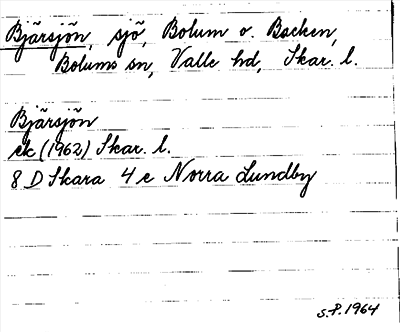 Bjärsjön, sjö, Bolum o. Backen,
Bolums sn, Valle hd, Skar. l.
Bjärsjön
ek (1962) Skar. l.
8 D Skara 4 e Norra Lundby
S.P. 1964